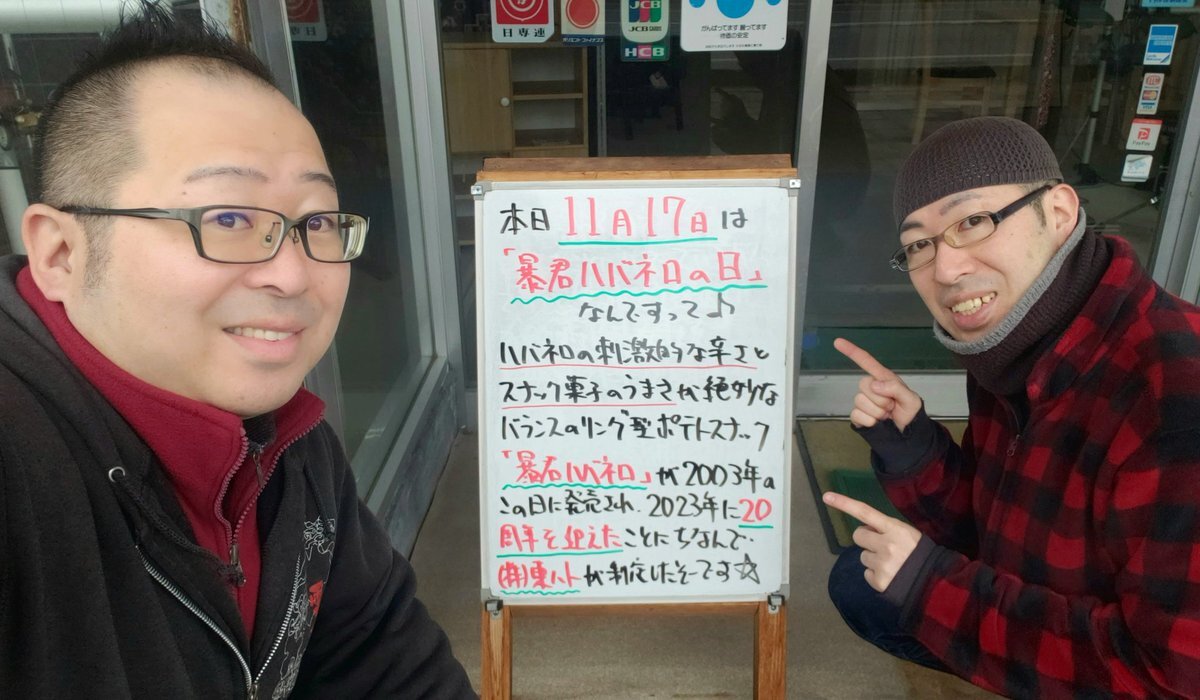 日専連
JCB
JCB CARD
HCB
がんばってます 握ってます
物価の安定
PayPay
本日11月17日は
「暴君ハバネロの日」
なんですって♪
ハバネロの刺激的な辛さと
スナック菓子のうまさが絶妙な
バランスのリング型ポテトスナック
「暴君ハバネロ」が2003年の
この日に発売され、2023年に20
周年を迎えたことにちなんで、
(株)東ハトが制定したそーです☆